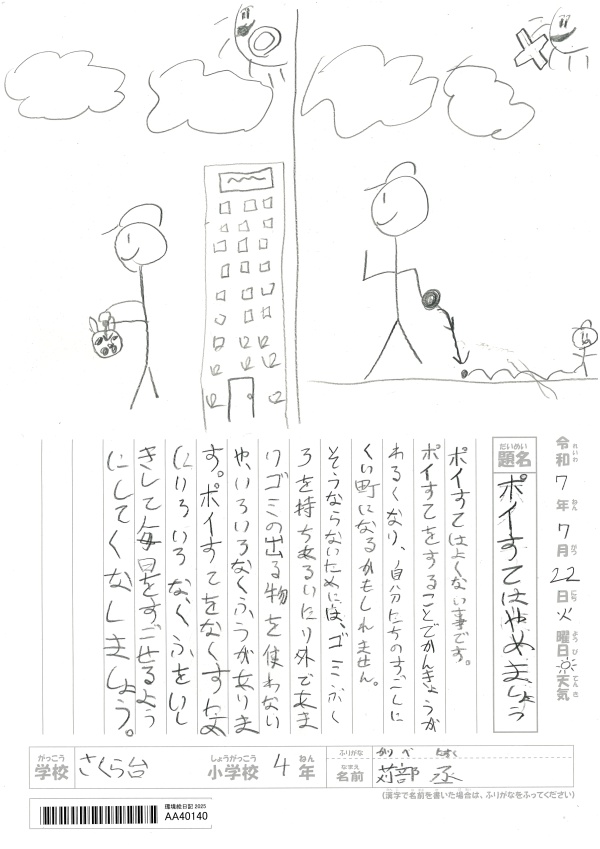 令和7年7月22日火曜日 天気
れいわ ねん がつ にち ようび てんき
だいめい
題名 ポイすてはやめましょう
ポイすてはよくない事です。
ポイすてをすることでかんきょうが
わるくなり、自分たちのすごしに
くい町になるかもしれません。
そうならないためには、ゴミぶく
ろを持ちあるいたり外であま
りゴミの出る物を使わない
や、いろいろなくふうがありま
す。ポイすてをなくす
にいろいろなくふうをいし
きして毎日をすごせるよう
にしてくなしましょう。
がっこう しょうがっこう ねん
学校 さくら台 小学校 4年
ふりがな かりべ たすく
なまえ
名前 苅部 丞
(漢字で名前を書いた場合は、ふりがなをふってください)
環境絵日記 2025
AA40140